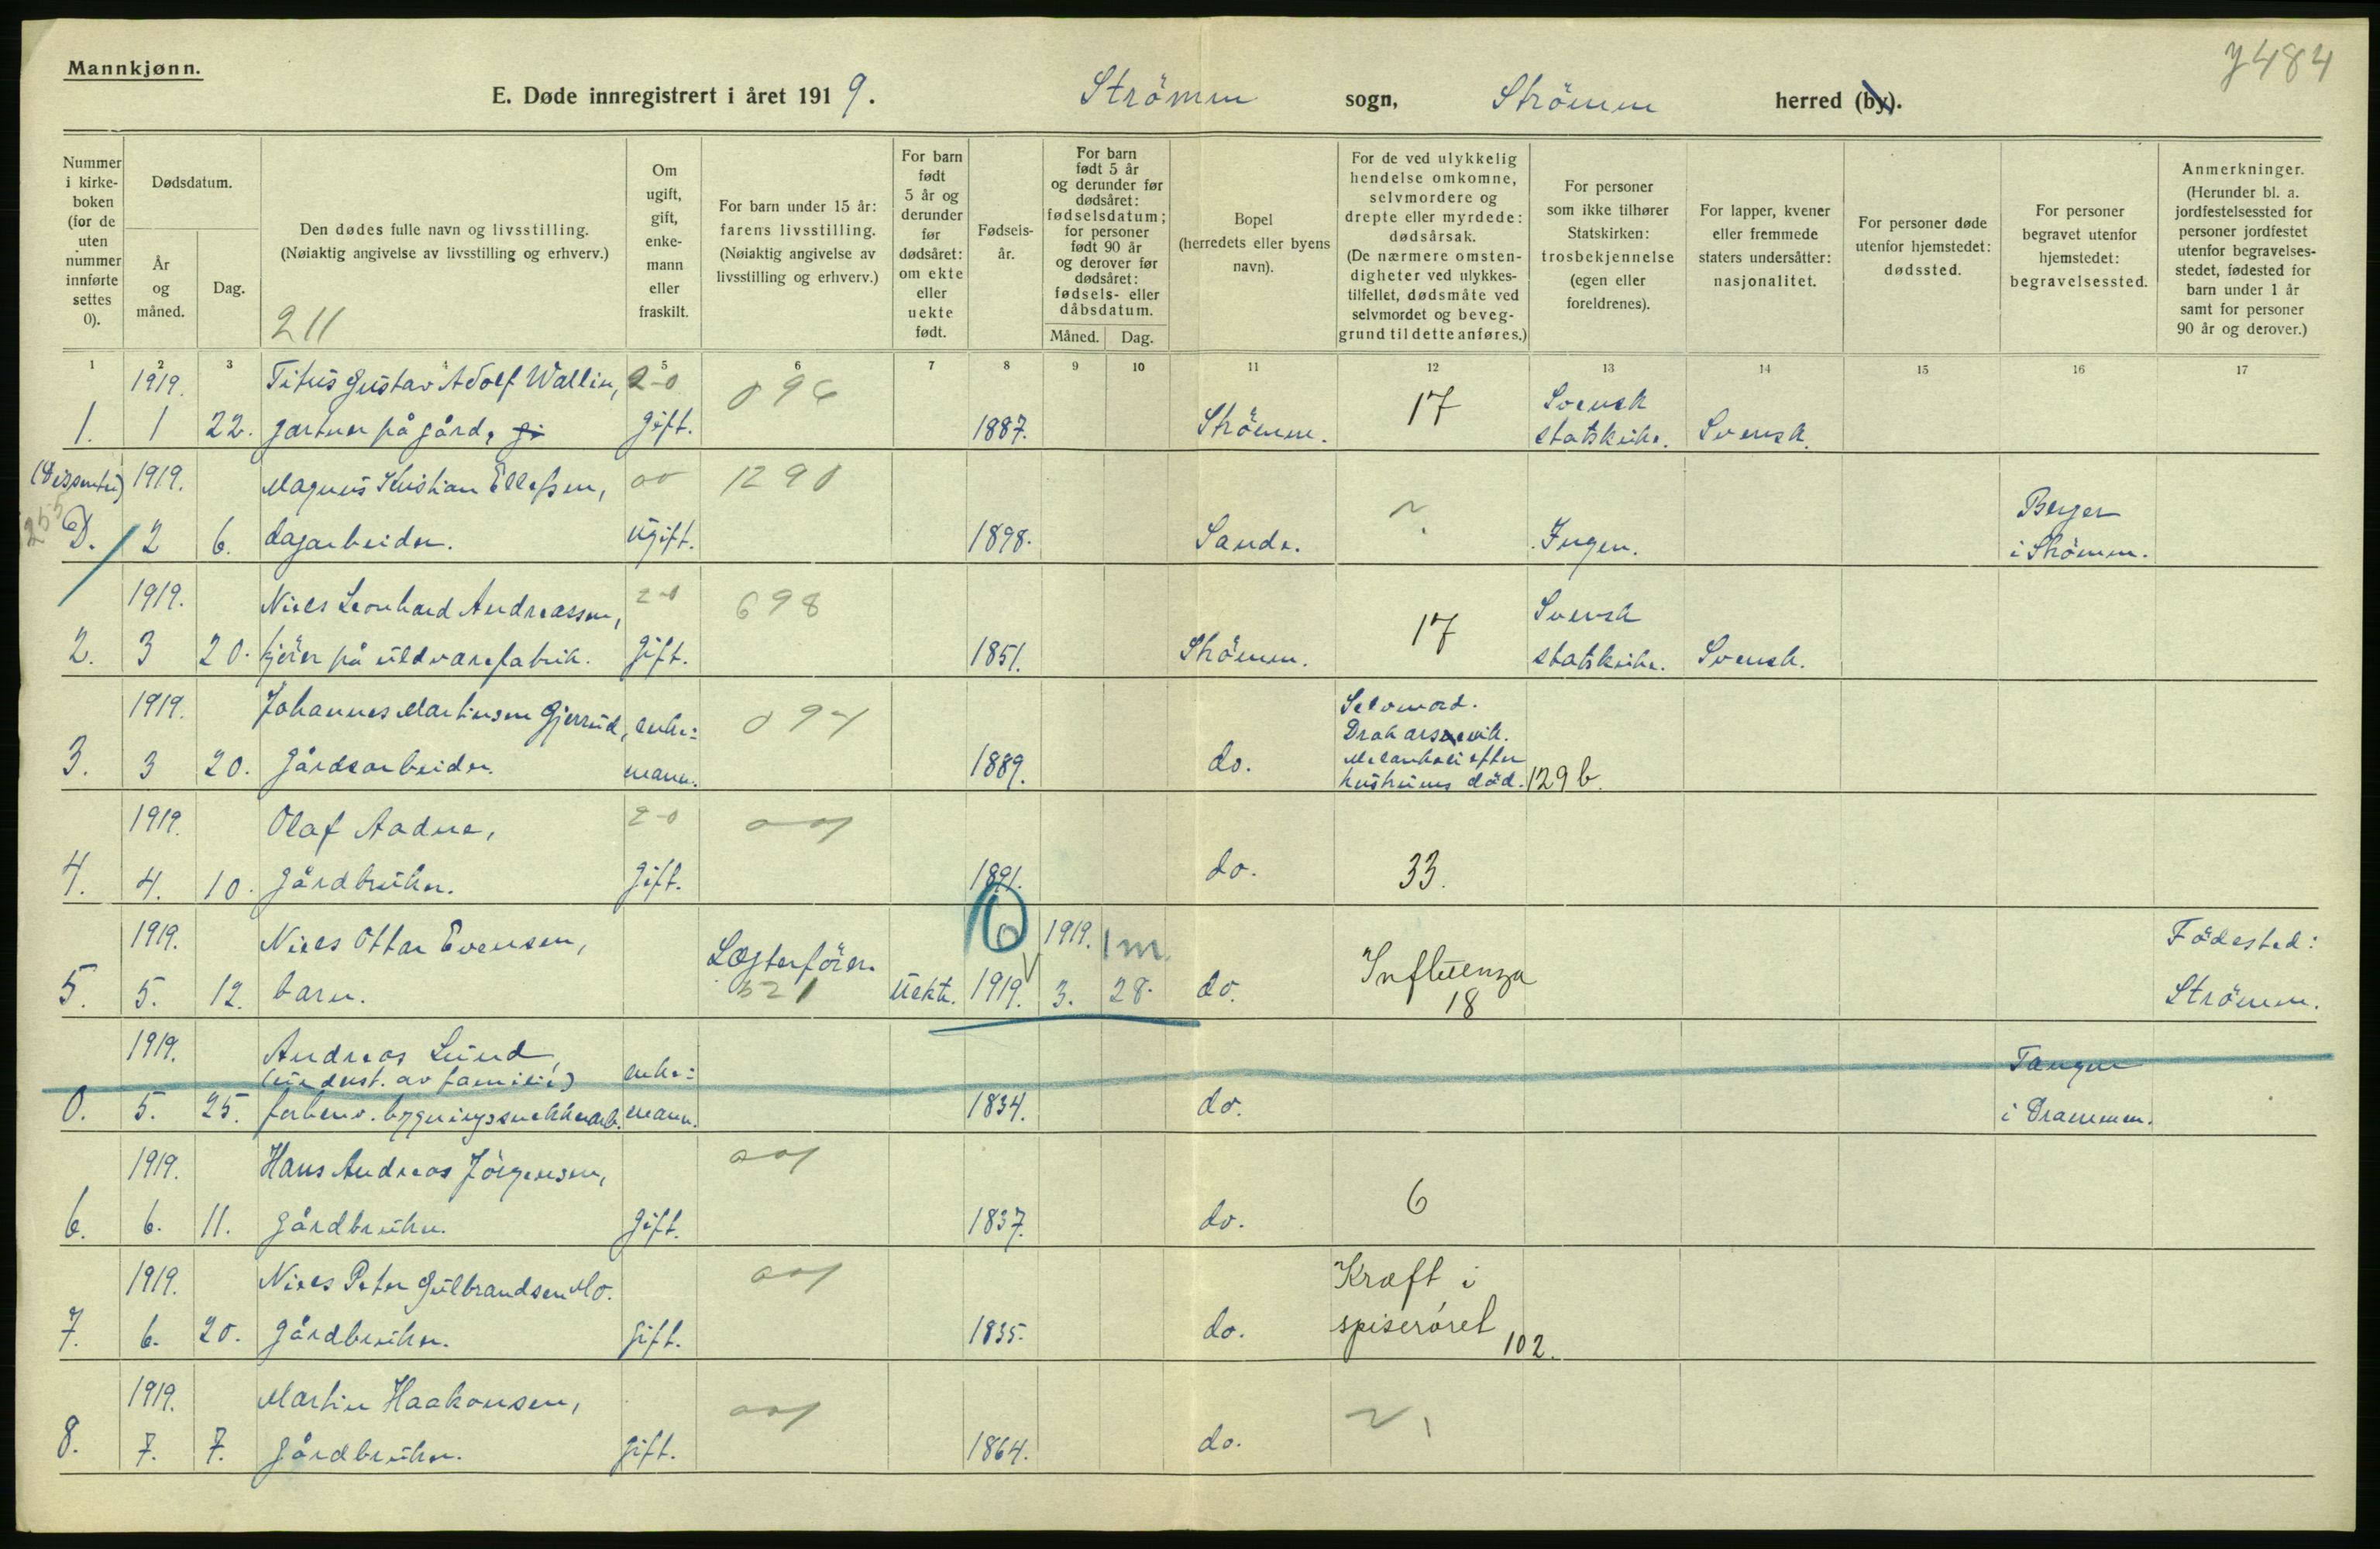 Mannkjønn.
J484
E. Døde innregistrert i året 1919. Strömm sogn, Strömm herred (by).
Nummer i kirke-boken (for de uten nummer innførte settes 0).
Dødsdatum.
År og måned.
Dag.
Den dødes fulle navn og livsstilling.
(Nøiaktig angivelse av livsstilling og erhverv.)
211
Om ugift, gift, enke-mann eller fraskilt.
For barn under 15 år: farens livsstilling.
(Nøiaktig angivelse av livsstilling og erhverv.)
For barn født 5 år og derunder før dødsåret: om ekte eller uekte født.
Fødsels-år.
For barn født 5 år og derunder før dødsåret: fødselsdatum; for personer født 90 år og derover før dødsåret: fødsels- eller dåbsdatum.
Måned. Dag.
Bopel (herredets eller byens navn).
For de ved ulykkelig hendelse omkomne, selvmordere og drepte eller myrdede: dødsårsak.
(De nærmere omsten-digheter ved ulykkes-tilfellet, dødsmåte ved selvmordet og beveg-grund til dette anføres.)
For personer som ikke tilhører Statskirken: trosbekjennelse (egen eller foreldrenes).
For lapper, kvener eller fremmede staters undersåtter: nasjonalitet.
For personer døde utenfor hjemstedet: dødssted.
For personer begravet utenfor hjemstedet: begravelsessted.
Anmerkninger.
(Herunder bl. a. jordfestelsessted for personer jordfestet utenfor begravelses-stedet, fødested for barn under 1 år samt for personer 90 år og derover.)
1 2 3 4 5 6 7 8 9 10 11 12 13 14 15 16 17
1919. Titus Gustav Adolf Wallin, 2-0 096 17 Svensk
1. 1 22. gartner på gård, gi gift. 1887. Strömm. statskirke. Svensk.
(Dissenter) 1919. Magnus Kristian Ellefsen, 00 1290 Berger
255 D. 2 6. dagarbeider. ugift. 1898. Sande. Ingen. i Strömm.
1919. Niels Leonhard Andreassen, 2-0 698 17 Svensk
2. 3 20. kjörer på uldvarefabrik. gift. 1851. Strömm. statskirke. Svensk.
1919. Johannes Martinsen Gjerrud, enke= 094 Selvmord.
Drak arsenik.
3. 3 20. gårdsarbeider. mann. 1889. do. Melankoli efter
hustruens död. 129 b.
1919. Olaf Aadne, 2-0 001
4. 4. 10. gårdbruker. gift. 1891. do. 33.
1919. Niels Ottar Evensen, Lægterförer. 10 1919. 1 m. Influenza Födested:
5. 5. 12. barn. 521 Uekte. 1919. 3. 28. do. 18 Strömm.
1919. Andreas Lund, enke= Tangen
(underst. av familie)
0. 5. 25. forhenv. bygningssnekkerarb. mann. 1834. do. i Drammen.
1919. Hans Andreas Jörgensen, 001
6. 6. 11. gårdbruker. gift. 1837. do. 6
1919. Niels Peter Gulbrandsen Mo. 001 Kræft i
7. 6. 20. gårdbruker. gift. 1835. do. spiserøret 102.
1919. Martin Haakonsen, 001
8. 7. 7. gårdbruker. gift. 1864. do.